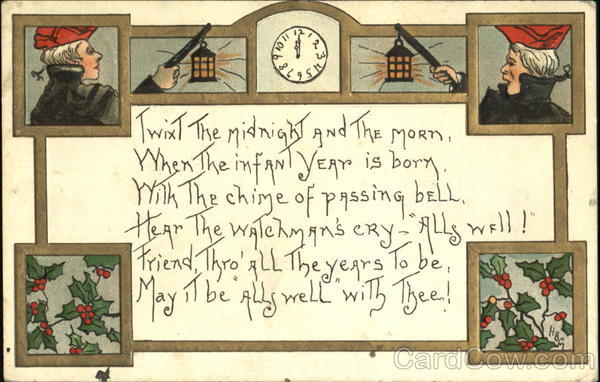 12
1
2
3
4
5
6
7
8
9
10
11
Twixt The midnight and The morn,
When The infant Year is born,
With The chime of passing bell,
Hear The Watchman's cry - "Alls well!"
Friend, Thro' all The years To be,
May it be "alls well" with Thee!
HBG
CardCow.com